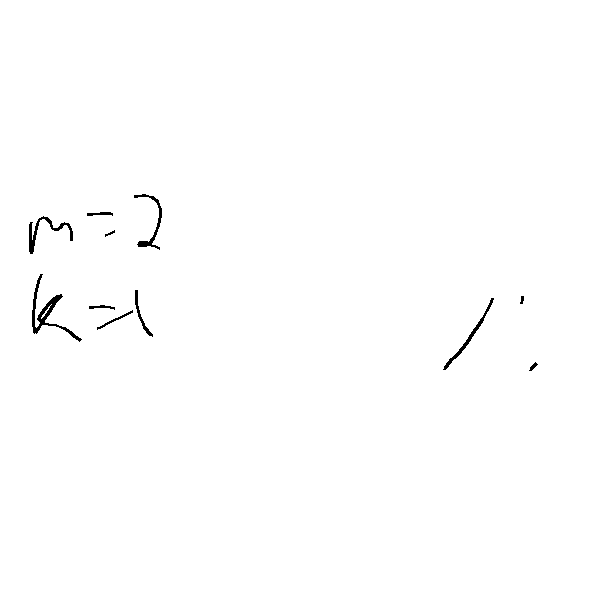 m=2
k=1